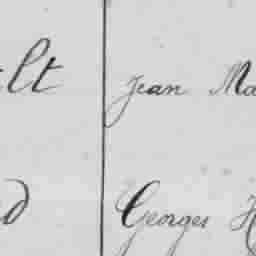 lt Jean Ma
d Georges H